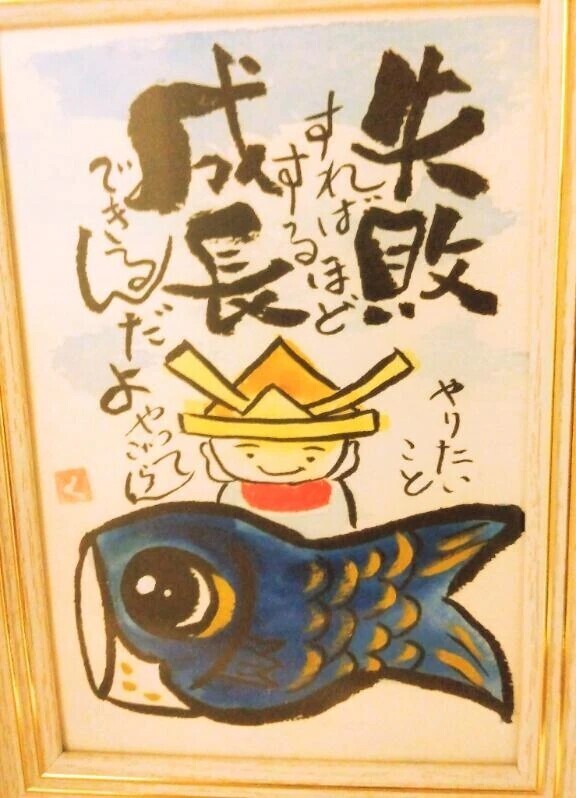 失敗
すればするほど
成長
できるんだよ
やりたい
こと
やって
ごらん